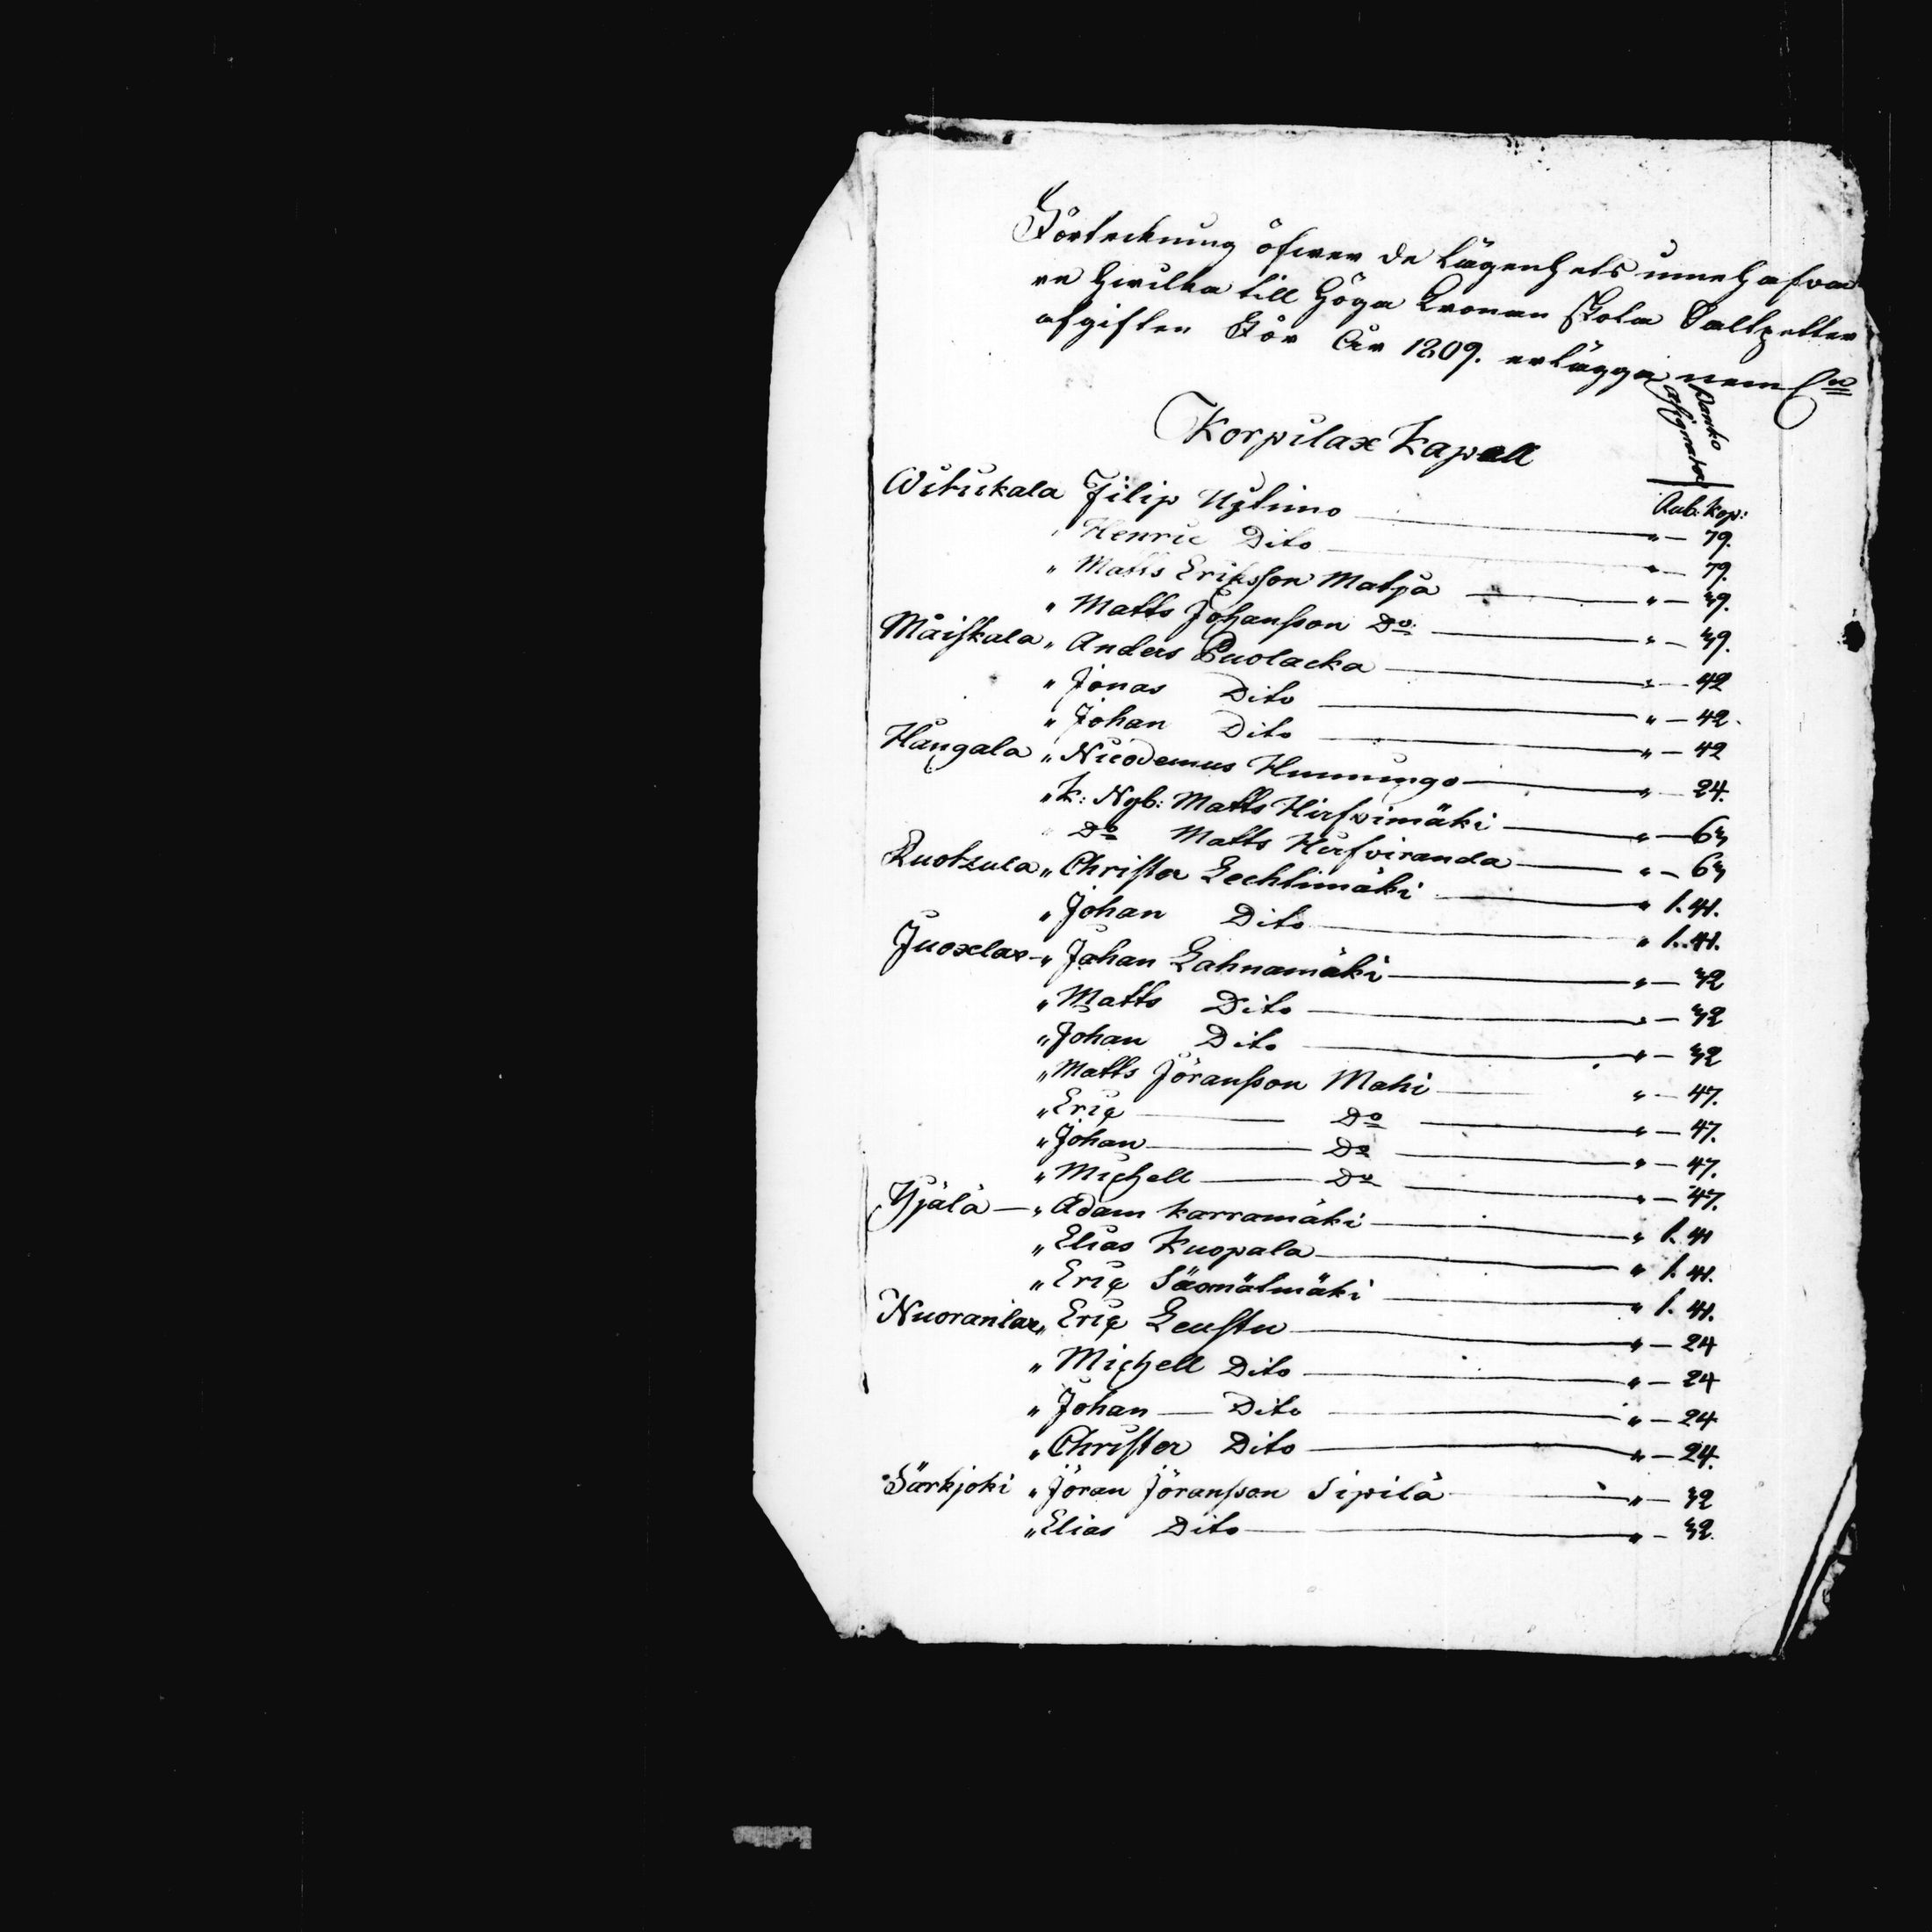 Förteckning öfwer de Lägenhets innehafva
re hwilka till Höga Kronan skola Saltpetter
afgiften För År 1809. erlägga nem.
Banko Assignationer
Korpilax Kapell
Rub: Kop:
Witikala Filip Uhlimo " — 79.
" Henric Dito " — 79.
" Matts Eriksson Matja " — 39.
" Matts Johansson Do " — 39.
Måiskala " Anders Puolacka " — 42
" Jonas Dito " — 42.
" Johan Dito " — 42
Hangala " Nicodemus Hunnungo " — 24.
" K: Nyb: Matts Hirfvimäki " — 63
" Do Matts Hirfviranda " — 63
Ruotzula " Christer Lechtimäki " 1. 41.
" Johan Dito " 1. 41.
Juoxlax — " Johan Lahnamäki " — 32
" Matts Dito " — 32
" Johan Dito " — 32
" Matts Jöransson Mahi " — 47.
" Eric Do " — 47.
" Johan Do " — 47.
" Michell Do " — 47.
— " Adam Karramäki " 1. 41
" Elias Kuopala " 1. 41.
" Eric Säxmälmäki " 1. 41.
Nuoranlax " Eric Leustu " — 24
" Michell Dito " — 24
" Johan — Dito " — 24
" Christer Dito " — 24.
Särkjoki " Jöran Jöransson Sipilä " — 32
" Elias Dito " — 32.